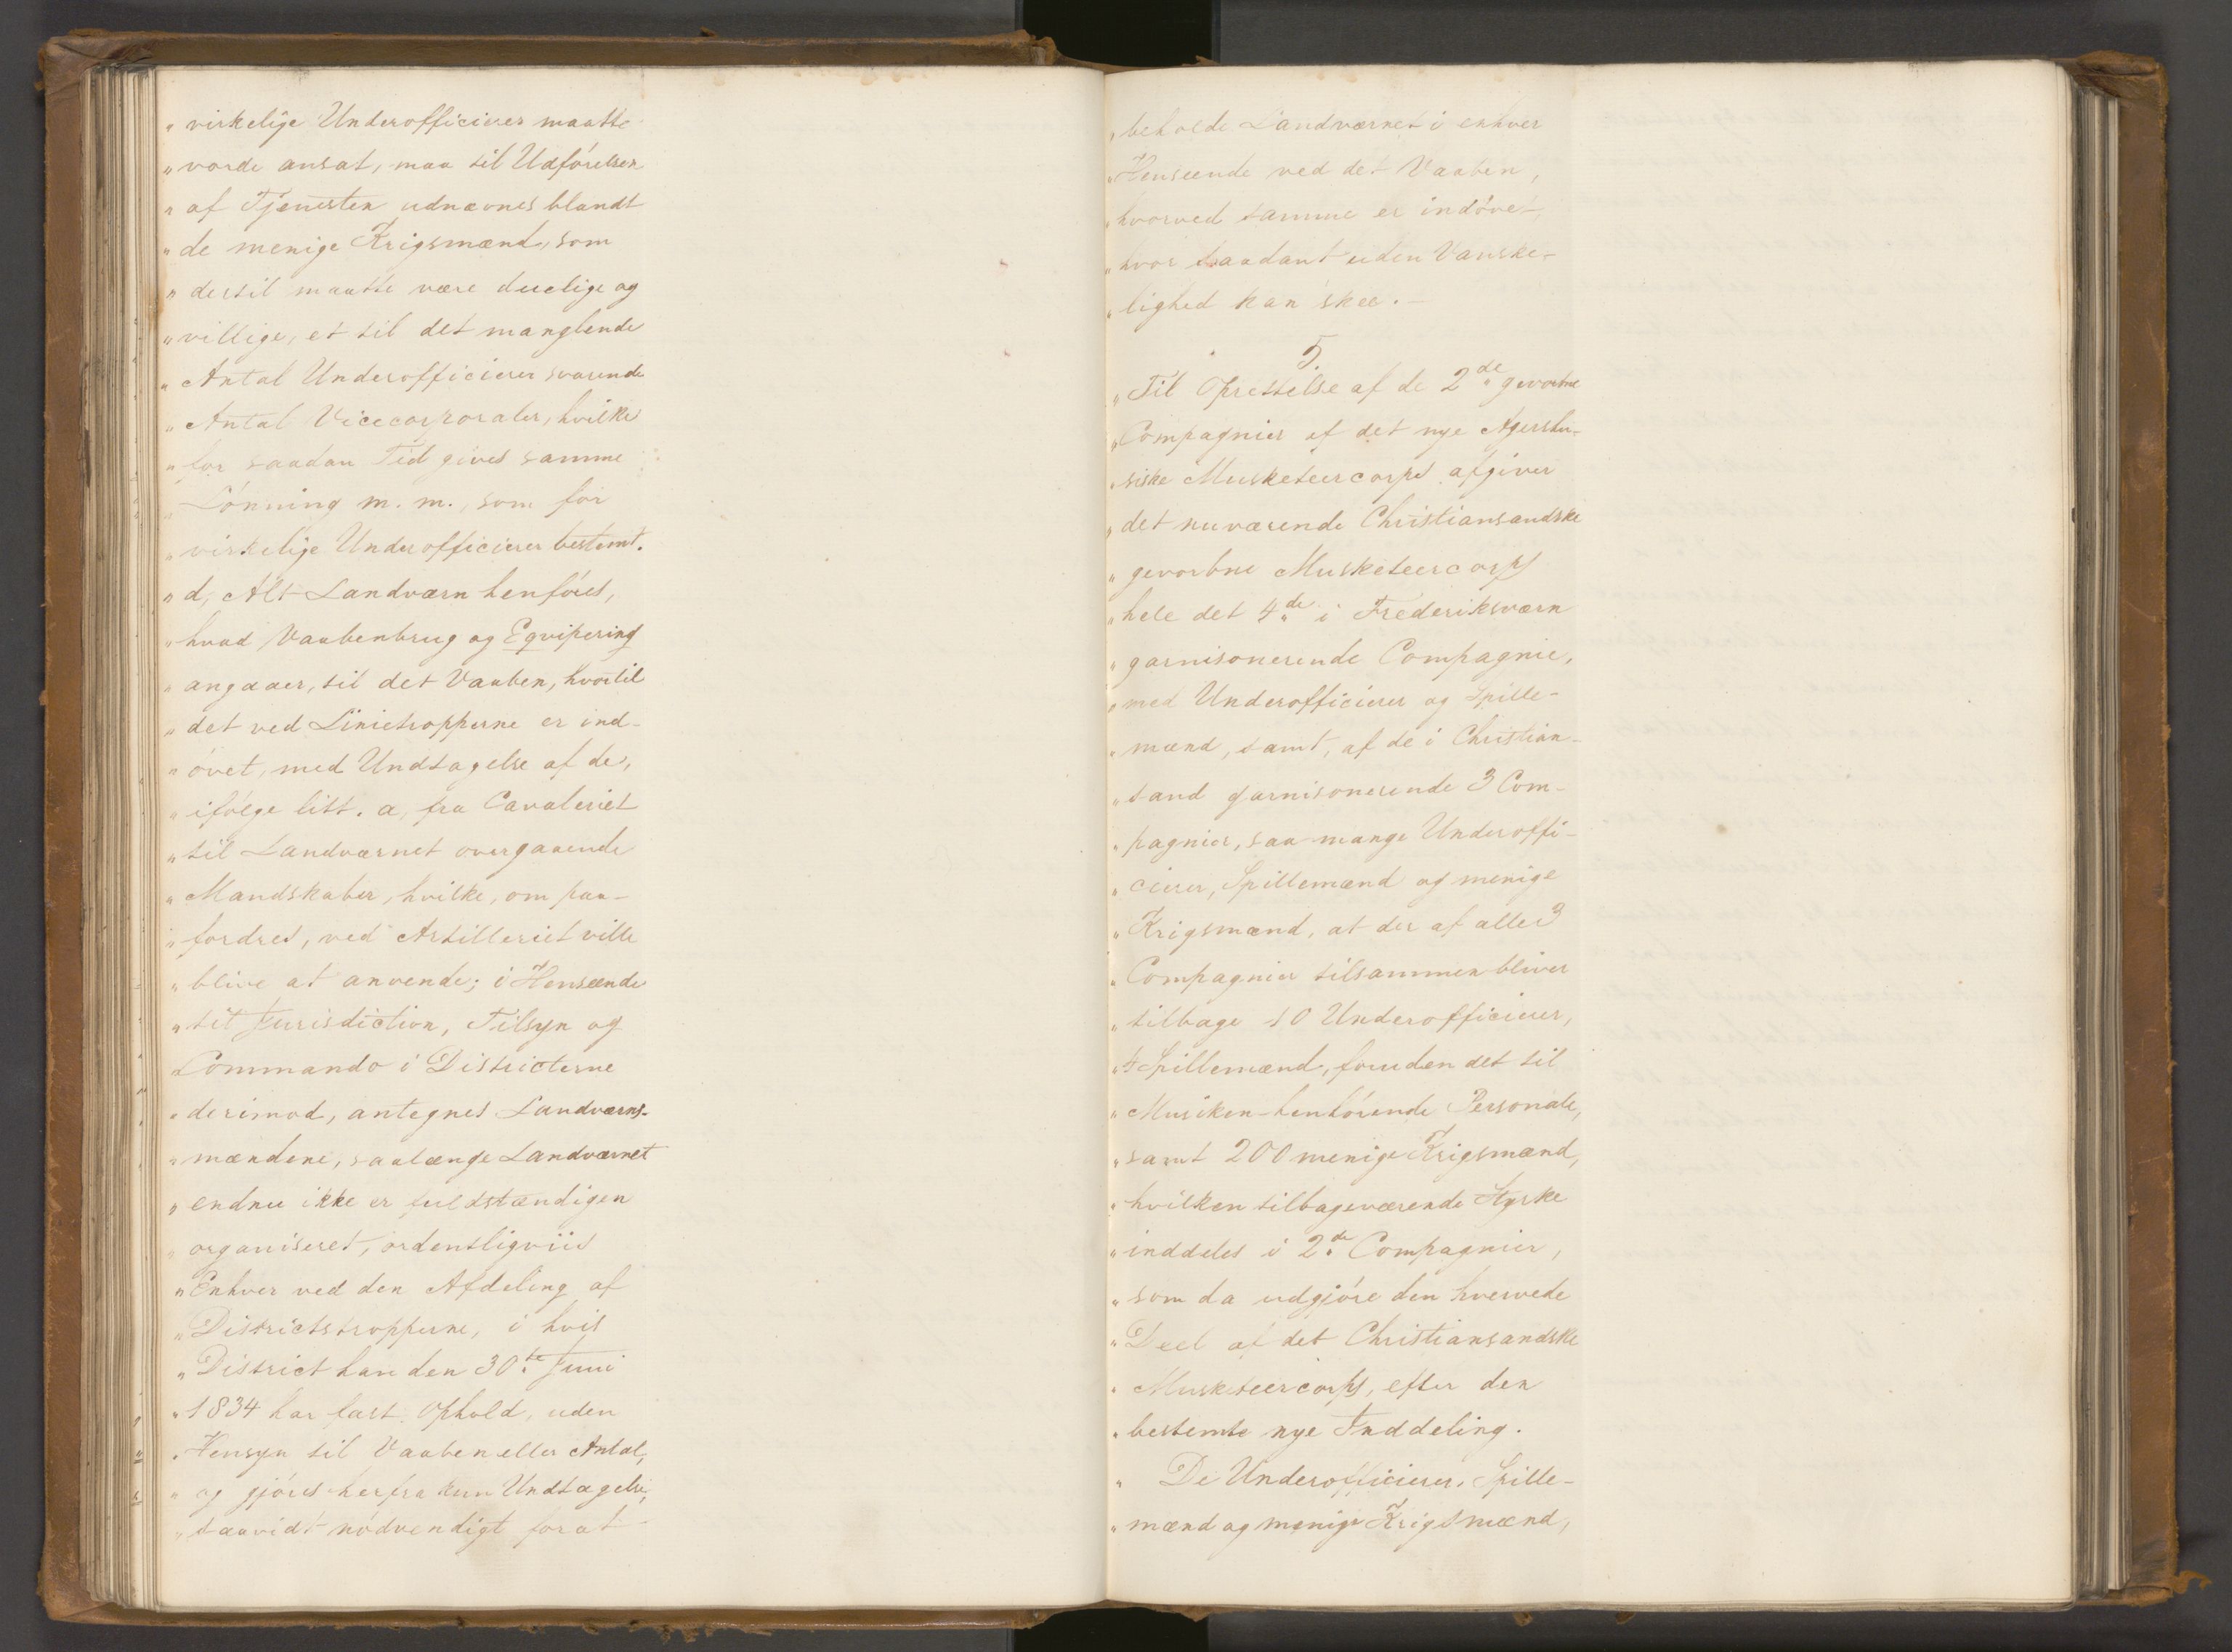 „ virkelige Underofficierer maatte
„ vorde ansat, maa til Udførelsen
„ af Tjenesten udnævnes blandt
„ de menige Krigsmænd, som
„ dertil maatte være duelige og
„ villige, et til det manglende
„ Antal Underofficierer svarende
„ Antal Vicecorporaler, hvilke
„ for saadan Tid gives samme
„ Lønning m. m., som for
„ virkelige Underofficierer bestemt.
„ d, Alt Landværn henføres,
„ hvad Vaabenbrug og Eqvipering
„ angaaer, til det Vaaben, hvortil
„ det ved Linietropperne er ind-
„ øvet, med Undtagelse af de,
„ ifølge litt. a, fra Cavaleriet
„ til Landværnet overgaaende
„ Mandskaber, hvilke, om paa-
„ fordres, ved Artilleriet ville
„ blive at anvende; i Henseende
„ til Jurisdiction, Tilsyn og
„ Commando i Districterne
„ derimod, antegnes Landværns-
„ mændene, saalænge Landværnet
„ endnu ikke er fuldstændigen
„ organiseret, ordentligviis
„ Enhver ved den Afdeling af
„ Districtstropperne, i hvis
„ District han den 30te Juni
„ 1834 har fast Ophold, uden
„ Hensyn til Vaaben eller Antal,
„ og gjøres herfra kun Undtagelse,
„ saavidt nødvendigt for at
„ beholde Landværnet i enhver
„ Henseende ved det Vaaben,
„ hvorved samme er indøvet,
„ hvor saadant uden Vanske-
„ lighed kan skee. -
5.
„ Til Oprettelse af de 2de gevorbne
„ Compagnier af det nye Agershu-
„ siske Musketeercorps afgiver
„ det nuværende Christiansandske
„ gevorbne Musketeercorps
„ hele det 4de i Frederiksværn
„ garnisonerende Compagnie,
„ med Underofficierer og Spille-
„ mænd, samt, af de i Christian-
„ sand garnisonerende 3 Com-
„ pagnier, saa mange Underoffi-
„ cierer, Spillemænd og menige
„ Krigsmænd, at der af alle 3
„ Compagnier tilsammen bliver
„ tilbage 10 Underofficierer,
„ 4 Spillemænd, foruden det til
„ Musiken henhørende Personale,
„ samt 200 menige Krigsmænd,
„ hvilken tilbageværende Styrke
„ inddeles i 2de Compagnier,
„ som da udgjøre den hvervede
„ Deel af det Christiansandske
„ Musketeercorps, efter den
„ bestemte nye Inddeling.
„ De Underofficierer, Spille-
„ mænd og menige Krigsmænd,